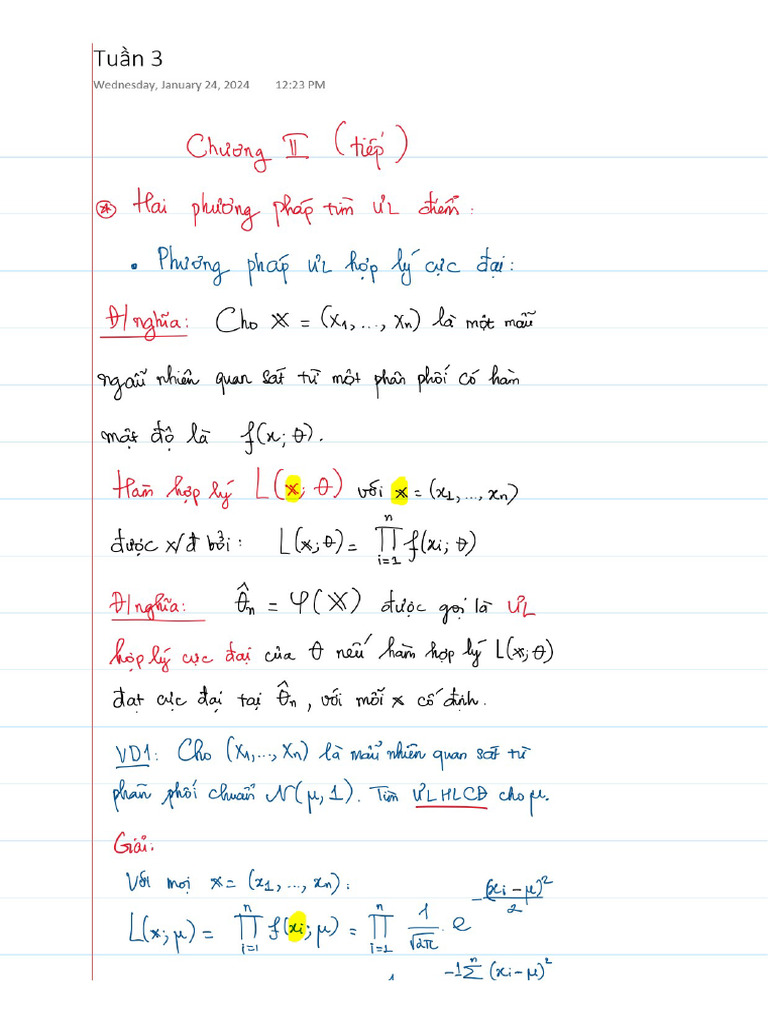 Tuần 3
Wednesday, January 24, 2024 12:23 PM
Chương II (tiếp)
* Hai phương pháp tìm ƯL điểm:
• Phương pháp ƯL hợp lý cực đại:
Đ/nghĩa: Cho 𝕏 = (X₁, ..., Xₙ) là một mẫu
ngẫu nhiên quan sát từ một phân phối có hàm
mật độ là f(x; θ).
Hàm hợp lý L(𝕩; θ) với 𝕩 = (x₁, ..., xₙ)
được x/đ bởi: L(𝕩; θ) = ∏ᵢ₌₁ⁿ f(xᵢ; θ)
Đ/nghĩa: θ̂ₙ = φ(𝕏) được gọi là ƯL
hợp lý cực đại của θ nếu hàm hợp lý L(𝕩; θ)
đạt cực đại tại θ̂ₙ, với mỗi 𝕩 cố định.
VD1: Cho (X₁, ..., Xₙ) là mẫu nhiên quan sát từ
phân phối chuẩn N(μ, 1). Tìm ƯLHLCĐ cho μ.
Giải:
Với mọi 𝕩 = (x₁, ..., xₙ):
L(𝕩; μ) = ∏ᵢ₌₁ⁿ f(xᵢ; μ) = ∏ᵢ₌₁ⁿ 1/√2π · e^(-(xᵢ - μ)²/2)
-1 Σⁿ (xᵢ - μ)²